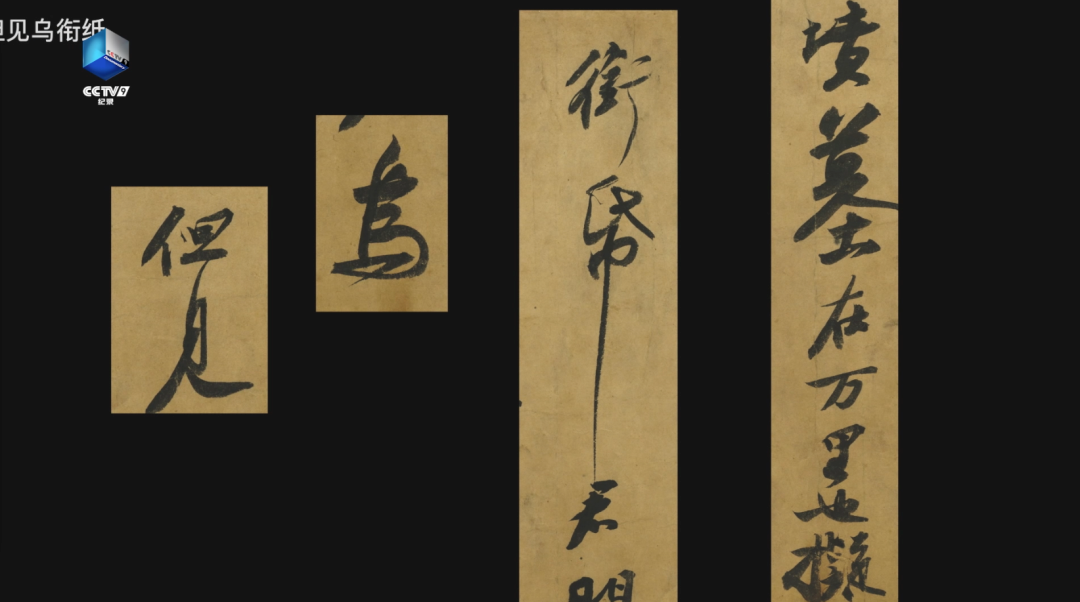 但见乌衔纸
CCTV9
纪录
但見
烏
銜帋君門
墳墓在万里也擬